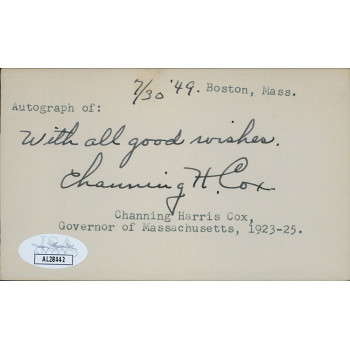 7/30 '49. Boston, Mass.
Autograph of:
With all good wishes.
Channing H. Cox
Channing Harris Cox,
Governor of Massachusetts, 1923-25.
AL28442